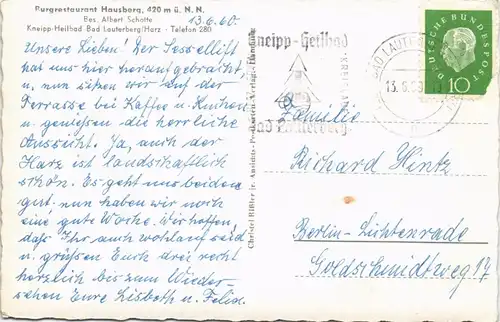 Burgrestaurant Hausberg, 420 m ü. N. N.
Bes. Albert Schatte
Kneipp-Heilbad Bad Lauterberg/Harz - Telefon 280
13.6.60.
Unsere Lieben! Der Sessellift
hat uns hier heraufgebracht,
u. nun sitzen wir auf der
Terrasse bei Kaffee u. Kuchen
u. genießen die herrliche
Aussicht. Ja, auch der
Harz ist landschaftlich
schön. Es geht uns beiden
gut. nun haben wir noch
eine gute Woche. Wir hoffen,
daß Ihr auch wohlauf seid
u. grüßen Euch drei recht
herzlich bis zum Wieder-
sehen Eure Lisbeth u. Felix.
Kneipp-Heilbad
Bad Lauterberg
BAD LAUTERBERG
DEUTSCHE BUNDESPOST
10
Familie
Richard Hintz
Berlin-Lichtenrade
Goldschmidtweg 17